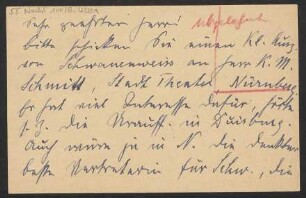 55 Nachl
abgelehnt
Sehr geehrter Herr!
bitte schicken Sie einen Kl. Ausz.
von Schwanenweiss an Herr K. M.
Schmitt, Stadt Theater Nürnberg.
Er hat viel Interesse dafür, hörte
s. Z. die Urauff. in Duisburg.
Auch wäre ja in N. die denkbar
beste Vertreterin für Schw., die